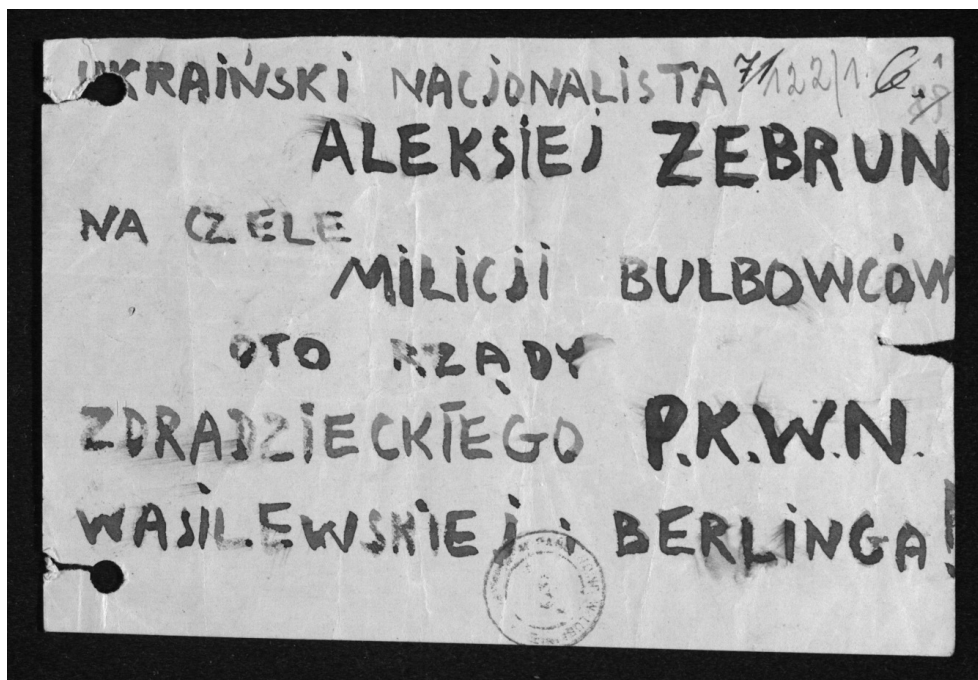 UKRAIŃSKI NACJONALISTA 71/122/1. 6
ALEKSIEJ ZEBRUN
NA CZELE
MILICJI BULBOWCÓW
OTO RZĄDY
ZDRADZIECKIEGO P.K.W.N.
WASILEWSKIEJ i BERLINGA!